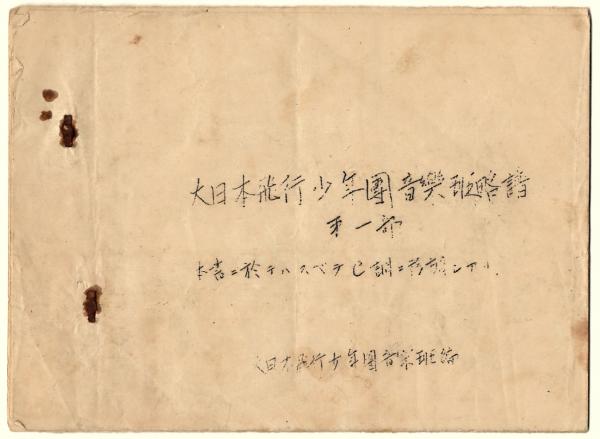 大日本飛行少年團音樂班略譜
第一部
本書ニ於テハスベテ調ニ移調シアリ
大日本飛行少年團音楽班編